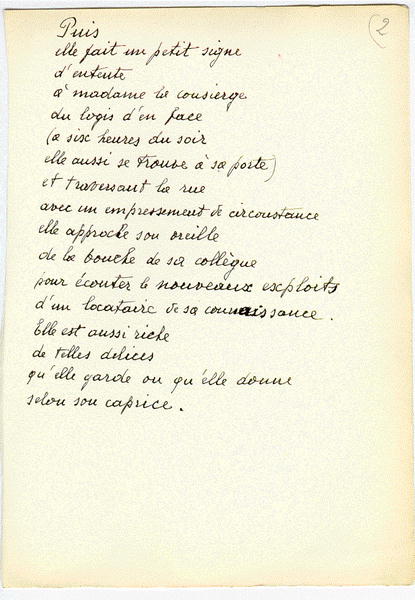 (2
Puis
elle fait un petit signe
d'entente
à madame la consierge
du logis d'en face
(a six heures du soir
elle aussi se trouve à sa porte)
et traversant la rue
avec un empressement de circonstance
elle approche son oreille
de la bouche de sa collègue
pour écouter le nouveaux exploits
d'un locataire de sa connaissance.
Elle est aussi riche
de telles délices
qu'elle garde ou qu'elle donne
selon son caprice.